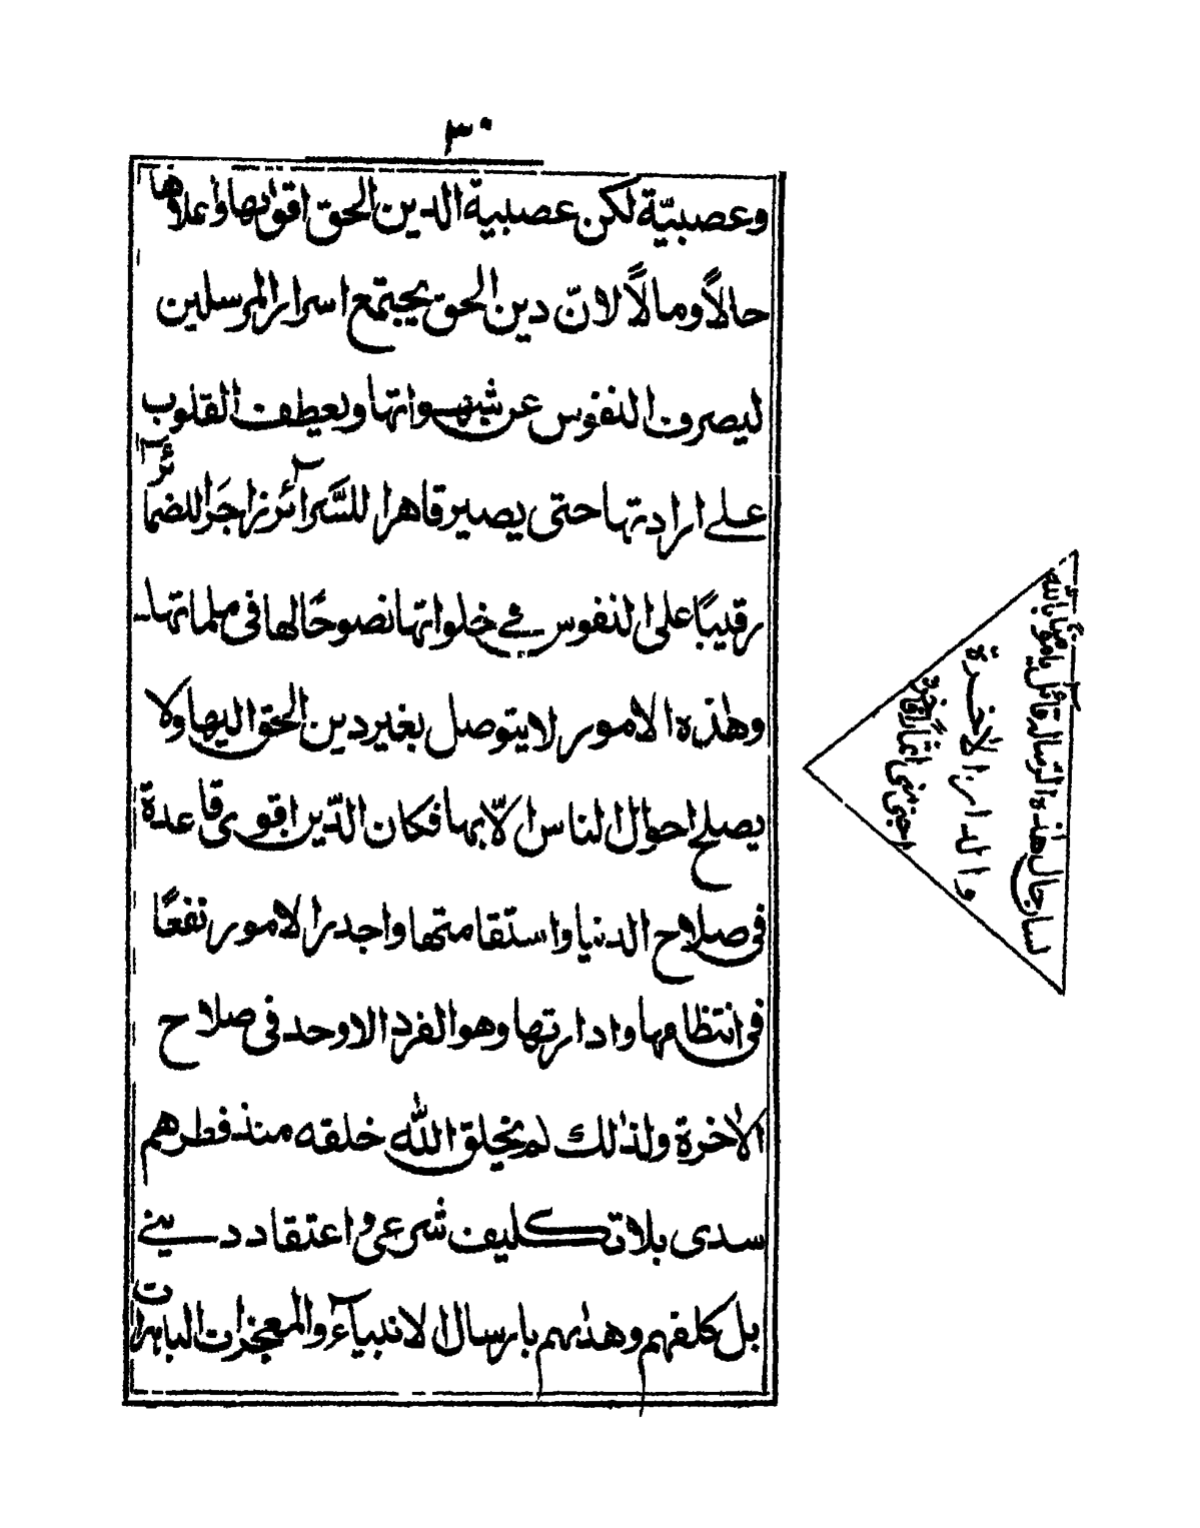 ٣٠
وعصبيّة لكن عصبية الدين الحق اقواها واعلاها
حالاً ومالاً لانّ دين الحق يجتمع اسرار المرسلين
ليصرف النفوس عن شهواتها ويعطف القلوب
على ارادتها حتى يصير قاهرا للسَّرآئر زاجَرا للضمآئر
رقيبًا على النفوس فى خلواتها نصوحًا لها فى ملماتها
وهٰذه الامور لا يتوصل بغير دين الحق اليها ولا
يصلح احوال الناس الاّ بها فكان الدّين اقوى قاعدة
فى صلاح الدنيا واستقامتها واجدر الامور نفعًا
فى انتظامها وادارتها وهو الفرد الاوحد فى صلاح
الاٰخرة ولذٰلك لم يخلق اللّٰه خلقه منذ فطرهم
سدى بلا تكليف شرعى واعتقاد دينے
بل كلفهم وهدٰىهم بارسال الانبيآء والمعجزات الباهرات
لسان حال هذه الرسالة قائل يا مؤمنا بالله
والدار الاخرة